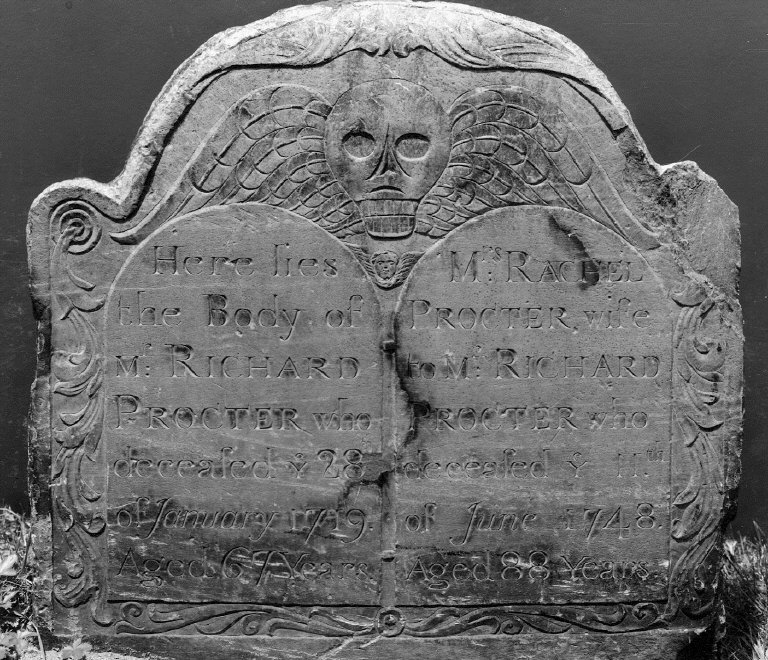 Here lies
the Body of
Mʳ. RICHARD
PROCTER who
deceaſed yͤ 28ᵗʰ
of January 1719.
Aged 67 Years.
Mʳˢ RACHEL
PROCTER, wife
to Mʳ. RICHARD
PROCTER who
deceaſed yͤ 11ᵗʰ
of June 1748.
Aged 88 Years.